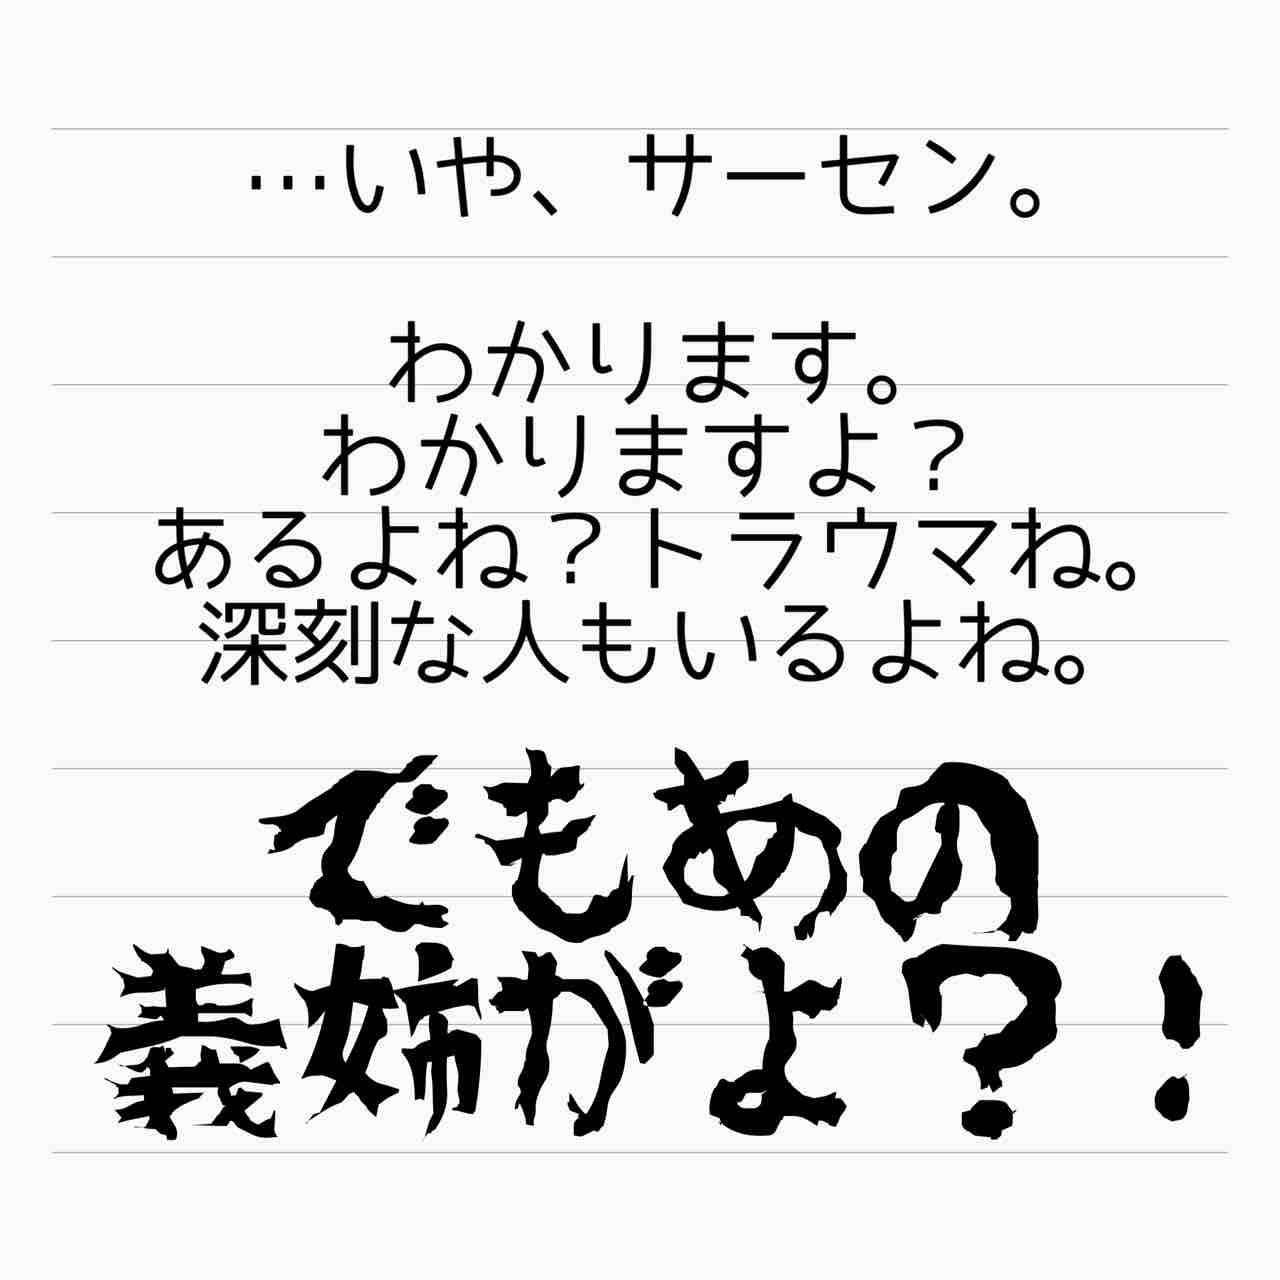 …いや、サーセン。
わかります。
わかりますよ？
あるよね？トラウマね。
深刻な人もいるよね。
でもあの
義姉がよ？！